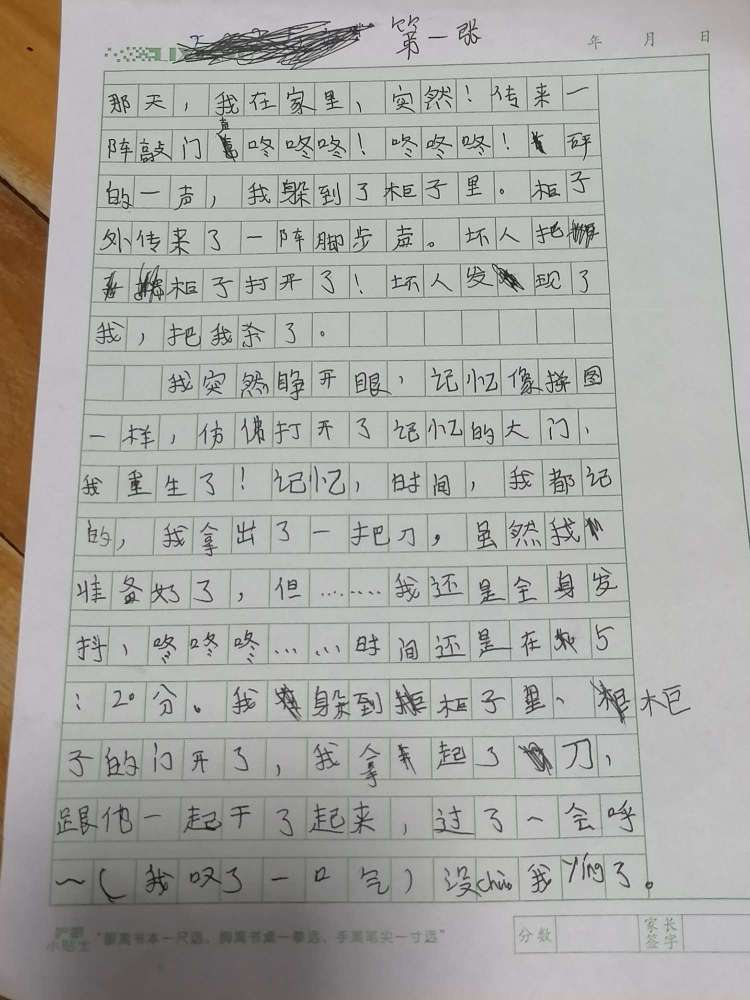 第一张
年 月 日
那天，我在家里，突然！传来一
阵敲门声咚咚咚！咚咚咚！砰
的一声，我躲到了柜子里。柜子
外传来了一阵脚步声。坏人把
柜子打开了！坏人发现了
我，把我杀了。
我突然睁开眼，记忆像拼图
一样，仿佛打开了记忆的大门，
我重生了！记忆，时间，我都记
的，我拿出了一把刀，虽然我
准备好了，但………我还是全身发
抖，咚咚咚……时间还是在5
：20分。我躲到柜子里、柜
子的门开了，我拿起了刀，
跟他一起干了起来，过了一会呼
～（我叹了一口气）没chuò我yíng了。
小贴士 “眼离书本一尺远、胸离书桌一拳远、手离笔尖一寸远”
分数
家长
签字